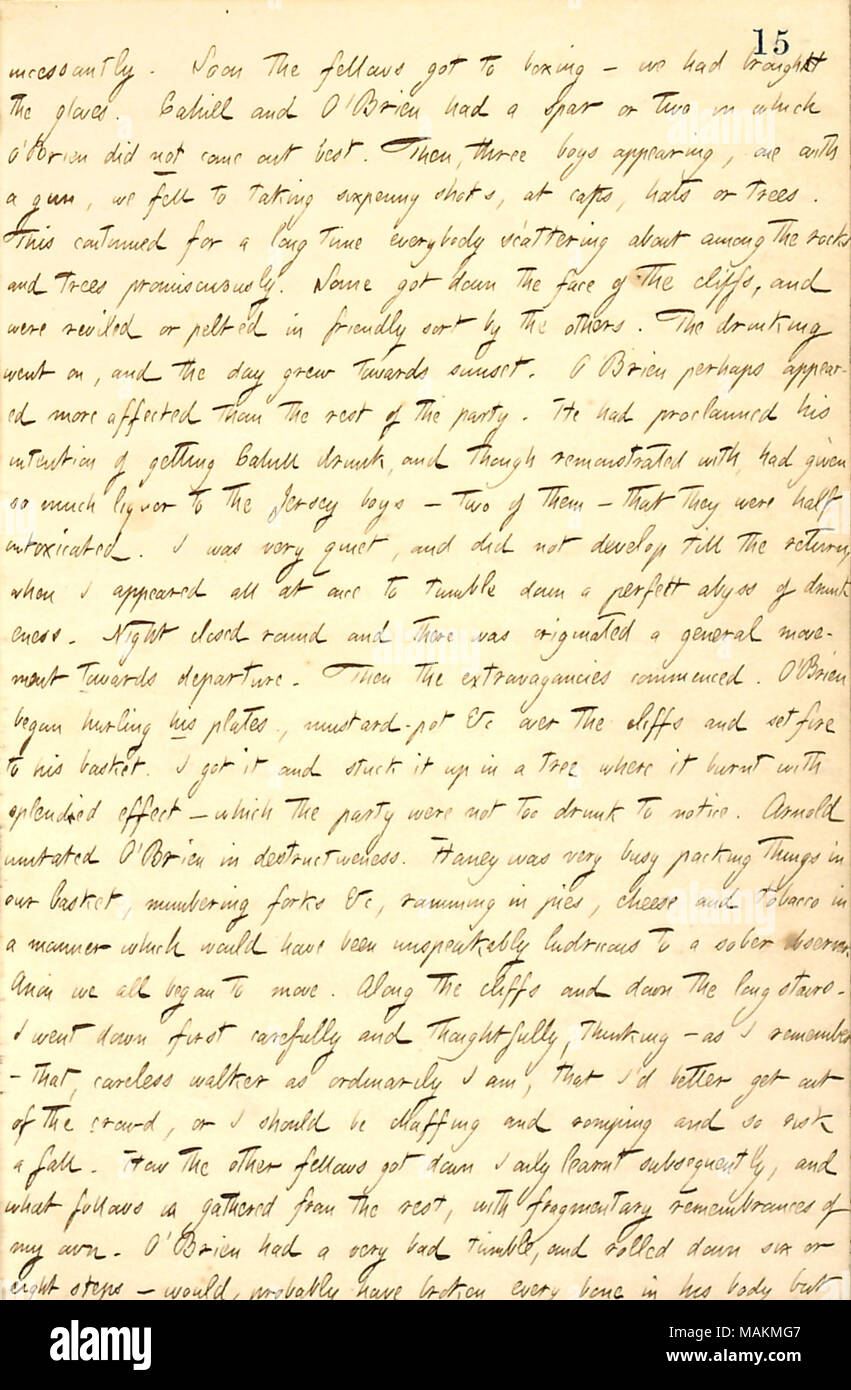 15
incessantly. Soon the fellows got to boxing — we had brought
the gloves. Cahill and O'Brien had a spar or two in which
O'Brien did not come out best. Then, three boys appearing, one with
a gun, we fell to taking sixpenny shots, at caps, hats or trees.
This continued for a long time everybody scattering about among the rocks
and trees promiscuously. Some got down the face of the cliffs, and
were reviled or pelted in friendly sort by the others. The drinking
went on, and the day grew towards sunset. O'Brien perhaps appear-
ed more affected than the rest of the party. He had proclaimed his
intention of getting Cahill drunk, and though remonstrated with, had given
so much liquor to the Jersey boys — two of them — that they were half
intoxicated. I was very quiet, and did not develop till the return,
when I appeared all at once to tumble down a perfect abyss of drunk
eness. Night closed round and there was originated a general move-
ment towards departure. Then the extravagancies commenced. O'Brien
began hurling his plates, mustard-pot &c over the cliffs and set fire
to his basket. I got it and stuck it up in a tree where it burnt with
splendied effect — which the party were not too drunk to notice. Arnold
imitated O'Brien in destructiveness. Haney was very busy packing things in
our basket, numbering forks &c, ramming in pies, cheese and tobacco in
a manner which would have been unspeakably ludricous to a sober observer.
Anon we all began to move. Along the cliffs and down the long stairs.
I went down first carefully and thoughtfully, thinking — as I remember
— that, careless walker as ordinarily I am, that I'd better get out
of the crowd, or I should be chaffing and romping and so risk
a fall. How the other fellows got down I only learnt subsequently, and
what follows is gathered from the rest, with fragmentary remembrances of
my own. O'Brien had a very bad tumble, and rolled down six or
eight steps — would, probably have broken every bone in his body but
alamy
Image ID: MAKMG7
www.alamy.com